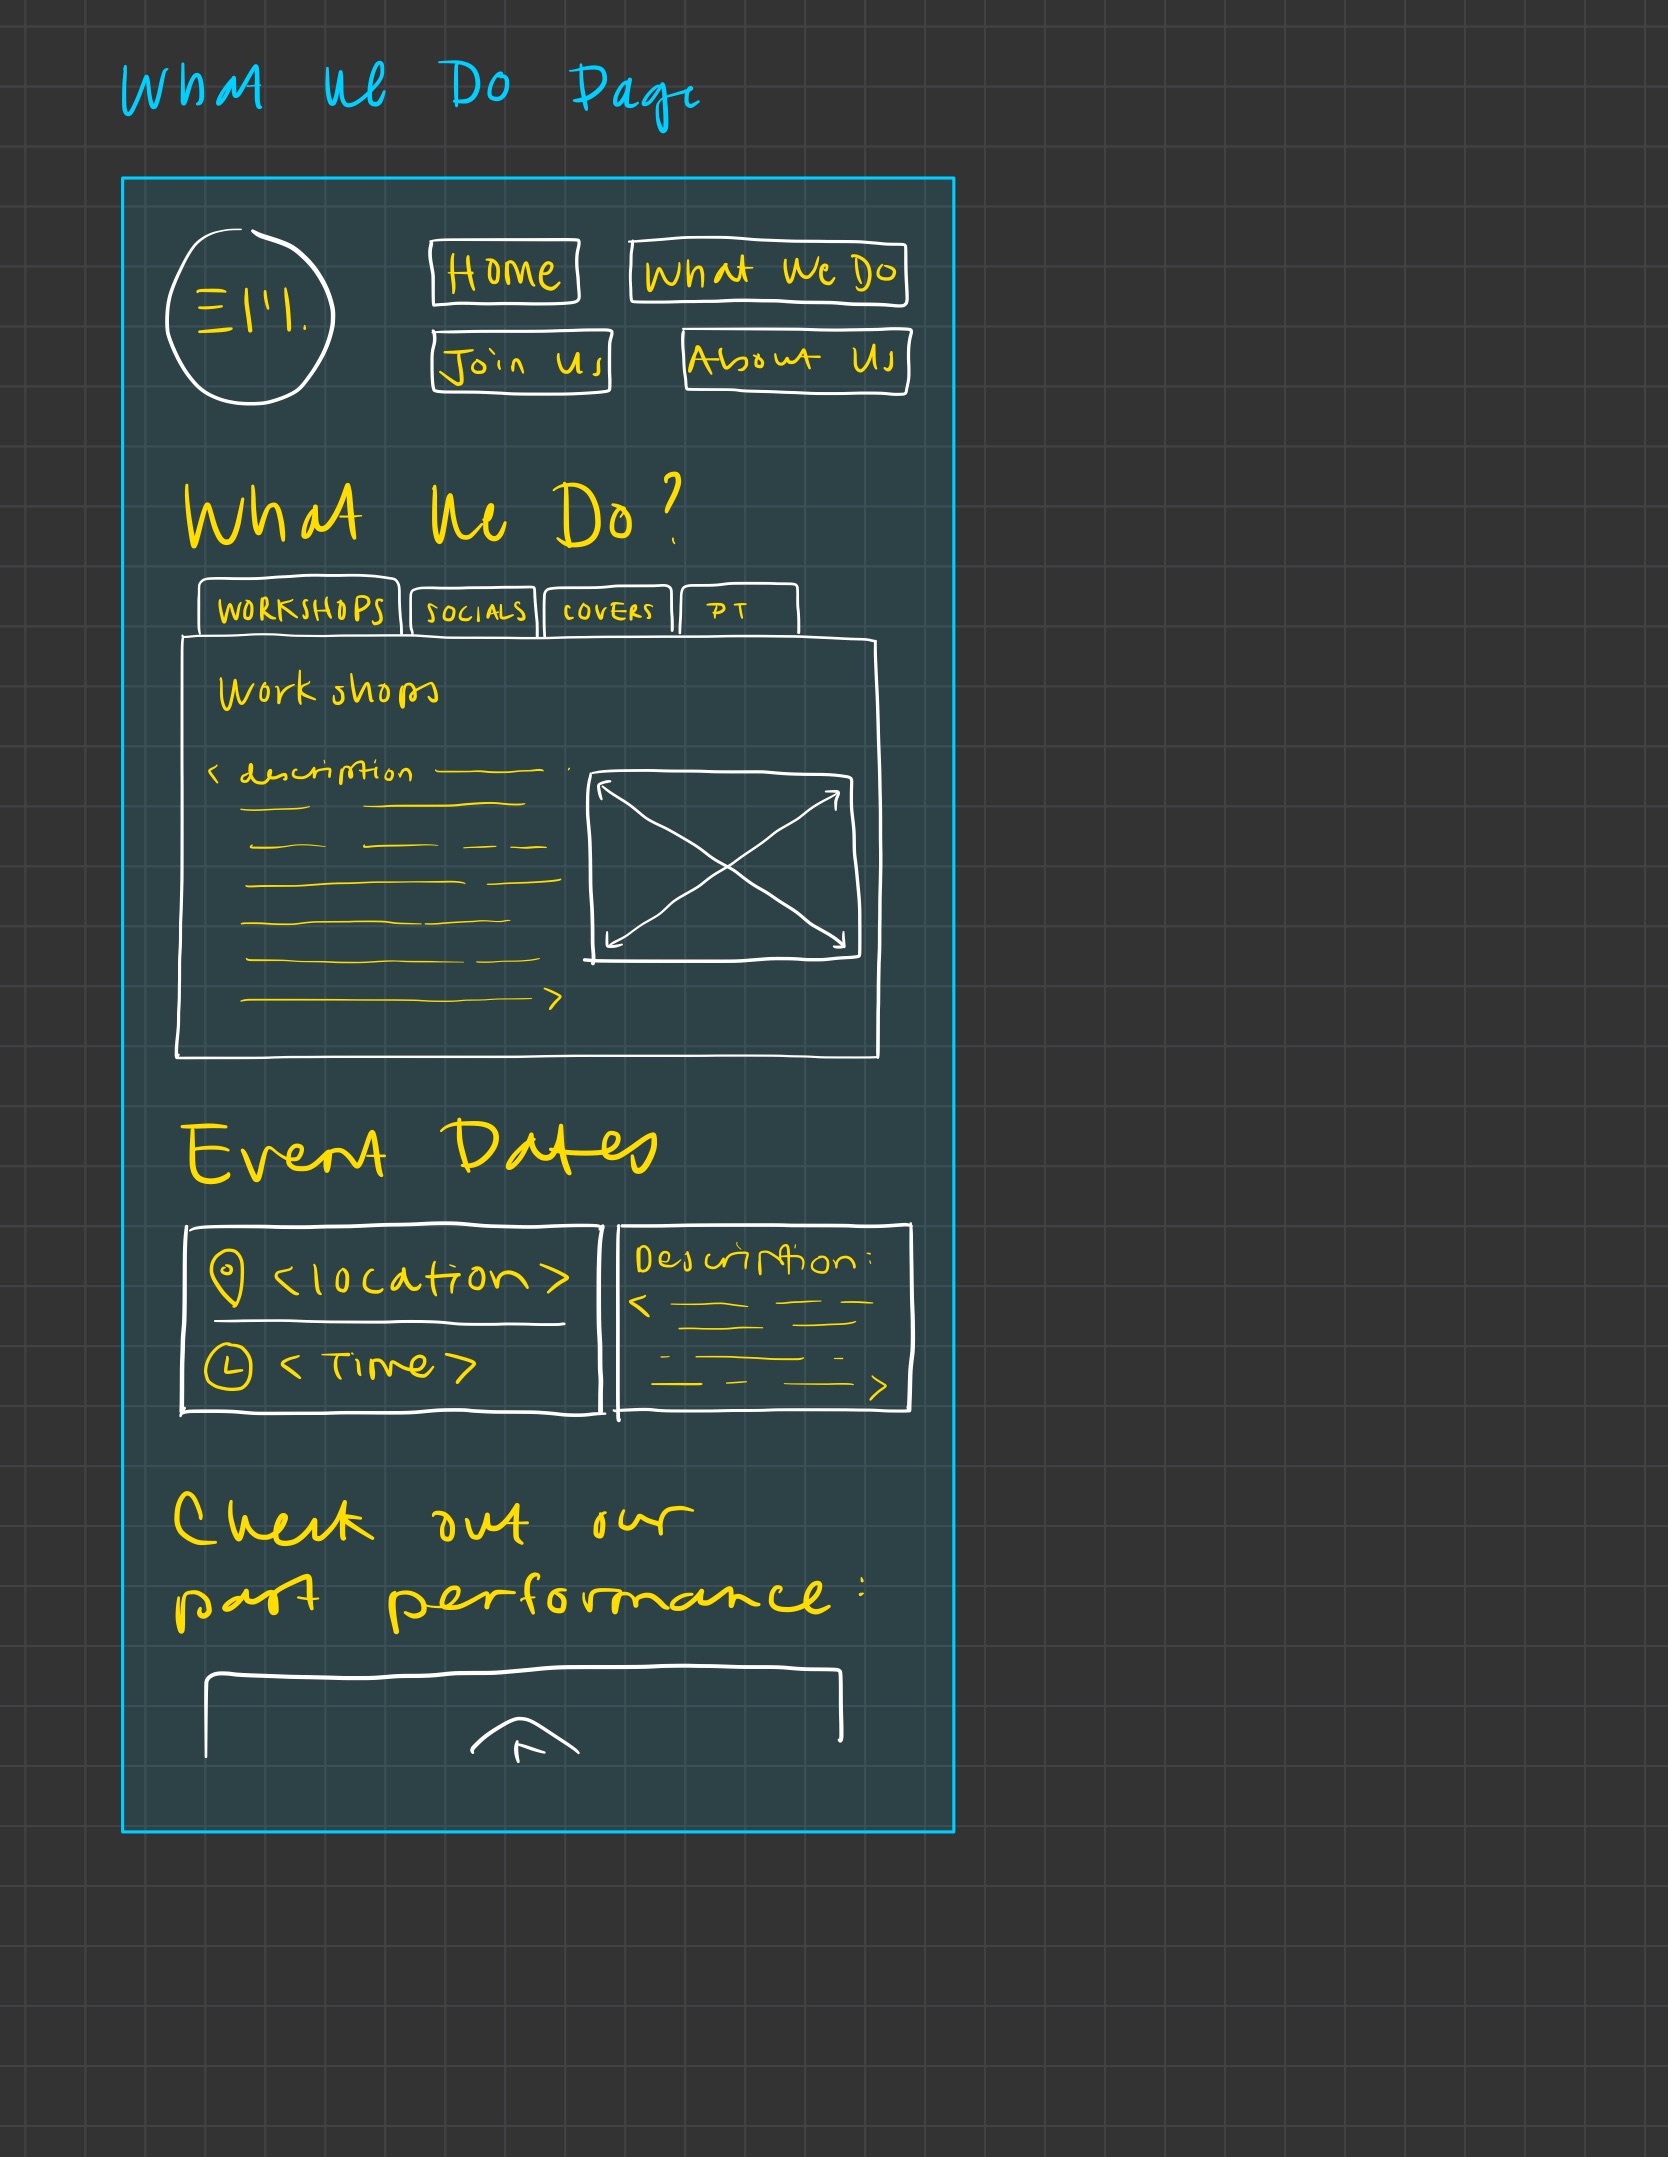 What We Do Page
Home What We Do
Join Us About Us
What We Do?
WORKSHOPS SOCIALS COVERS PT
Workshops
< description
>
Event Dates
<location> Description:
<
<Time>
>
Check out our
past performance: